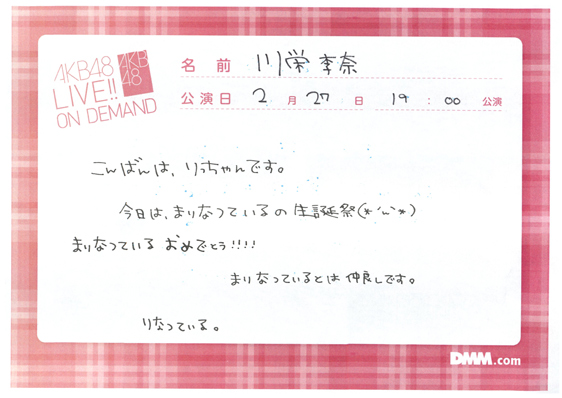 AKB48
LIVE!!
ON DEMAND
AKB
48
名前 川栄李奈
公演日 2月27日 19:00 公演
こんばんは、りっちゃんです。
今日は、まりなっているの生誕祭(*´ω`*)
まりなっているおめでとう!!!!
まりなっているとは仲良しです。
りなっている。
DMM.com